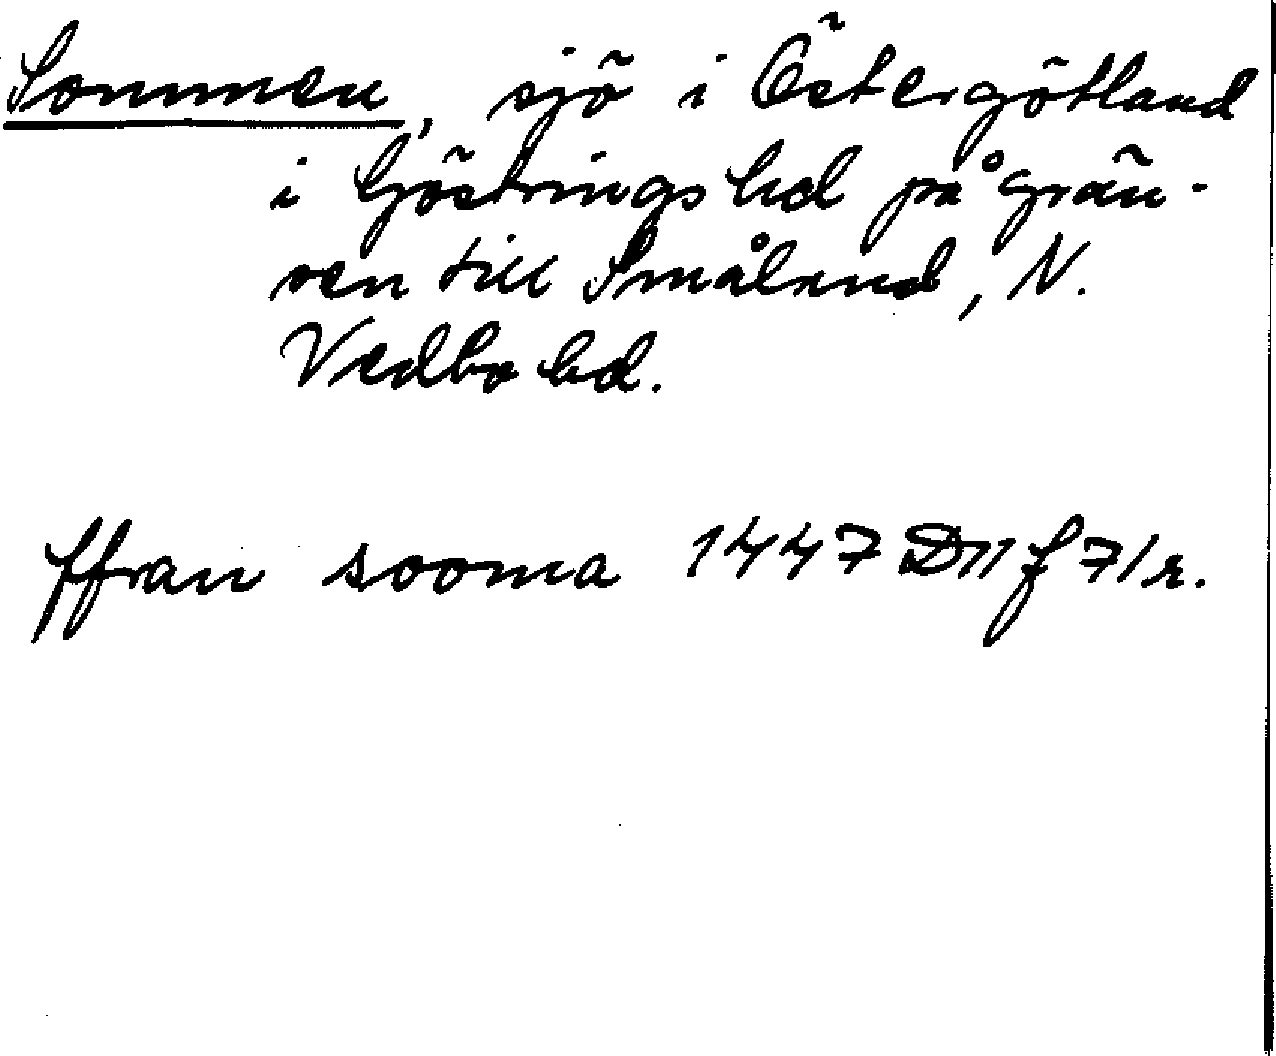 Sommen, sjö i Östergötland
i Göstrings hd på grän-
sen till Småland, N.
Vedbo hd.
ffran sooma 1447 D11 f 71r.